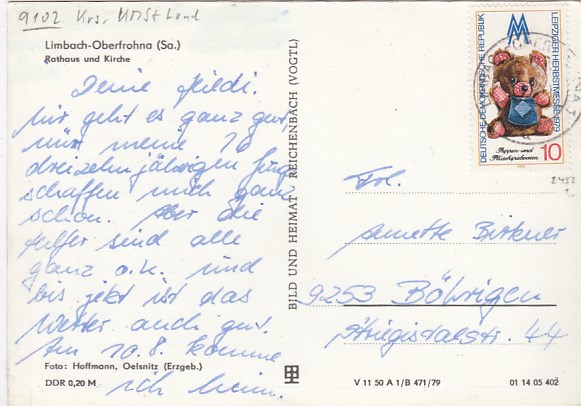 9102 Krs. KMSt Land
Limbach-Oberfrohna (Sa.)
Rathaus und Kirche
Deine Heidi.
Mir geht es ganz gut,
nur meine 10
dreizehnjährigen Jung
schaffen mich ganz
schön. Aber die
Helfer sind alle
ganz o.k. und
bis jetzt ist das
Wetter auch gut.
Am 10.8. komme
ich heim.
Foto: Hoffmann, Oelsnitz (Erzgeb.)
DDR 0,20 M
BILD UND HEIMAT REICHENBACH (VOGTL)
V 11 50 A 1/B 471/79
01 14 05 402
DEUTSCHE DEMOKRATISCHE REPUBLIK
LEIPZIGER HERBSTMESSE 1979
Puppen- und
Plüschspielwaren
10
Frl.
Annette Birkner
9253 Böhrigen
Striegistalstr. 44